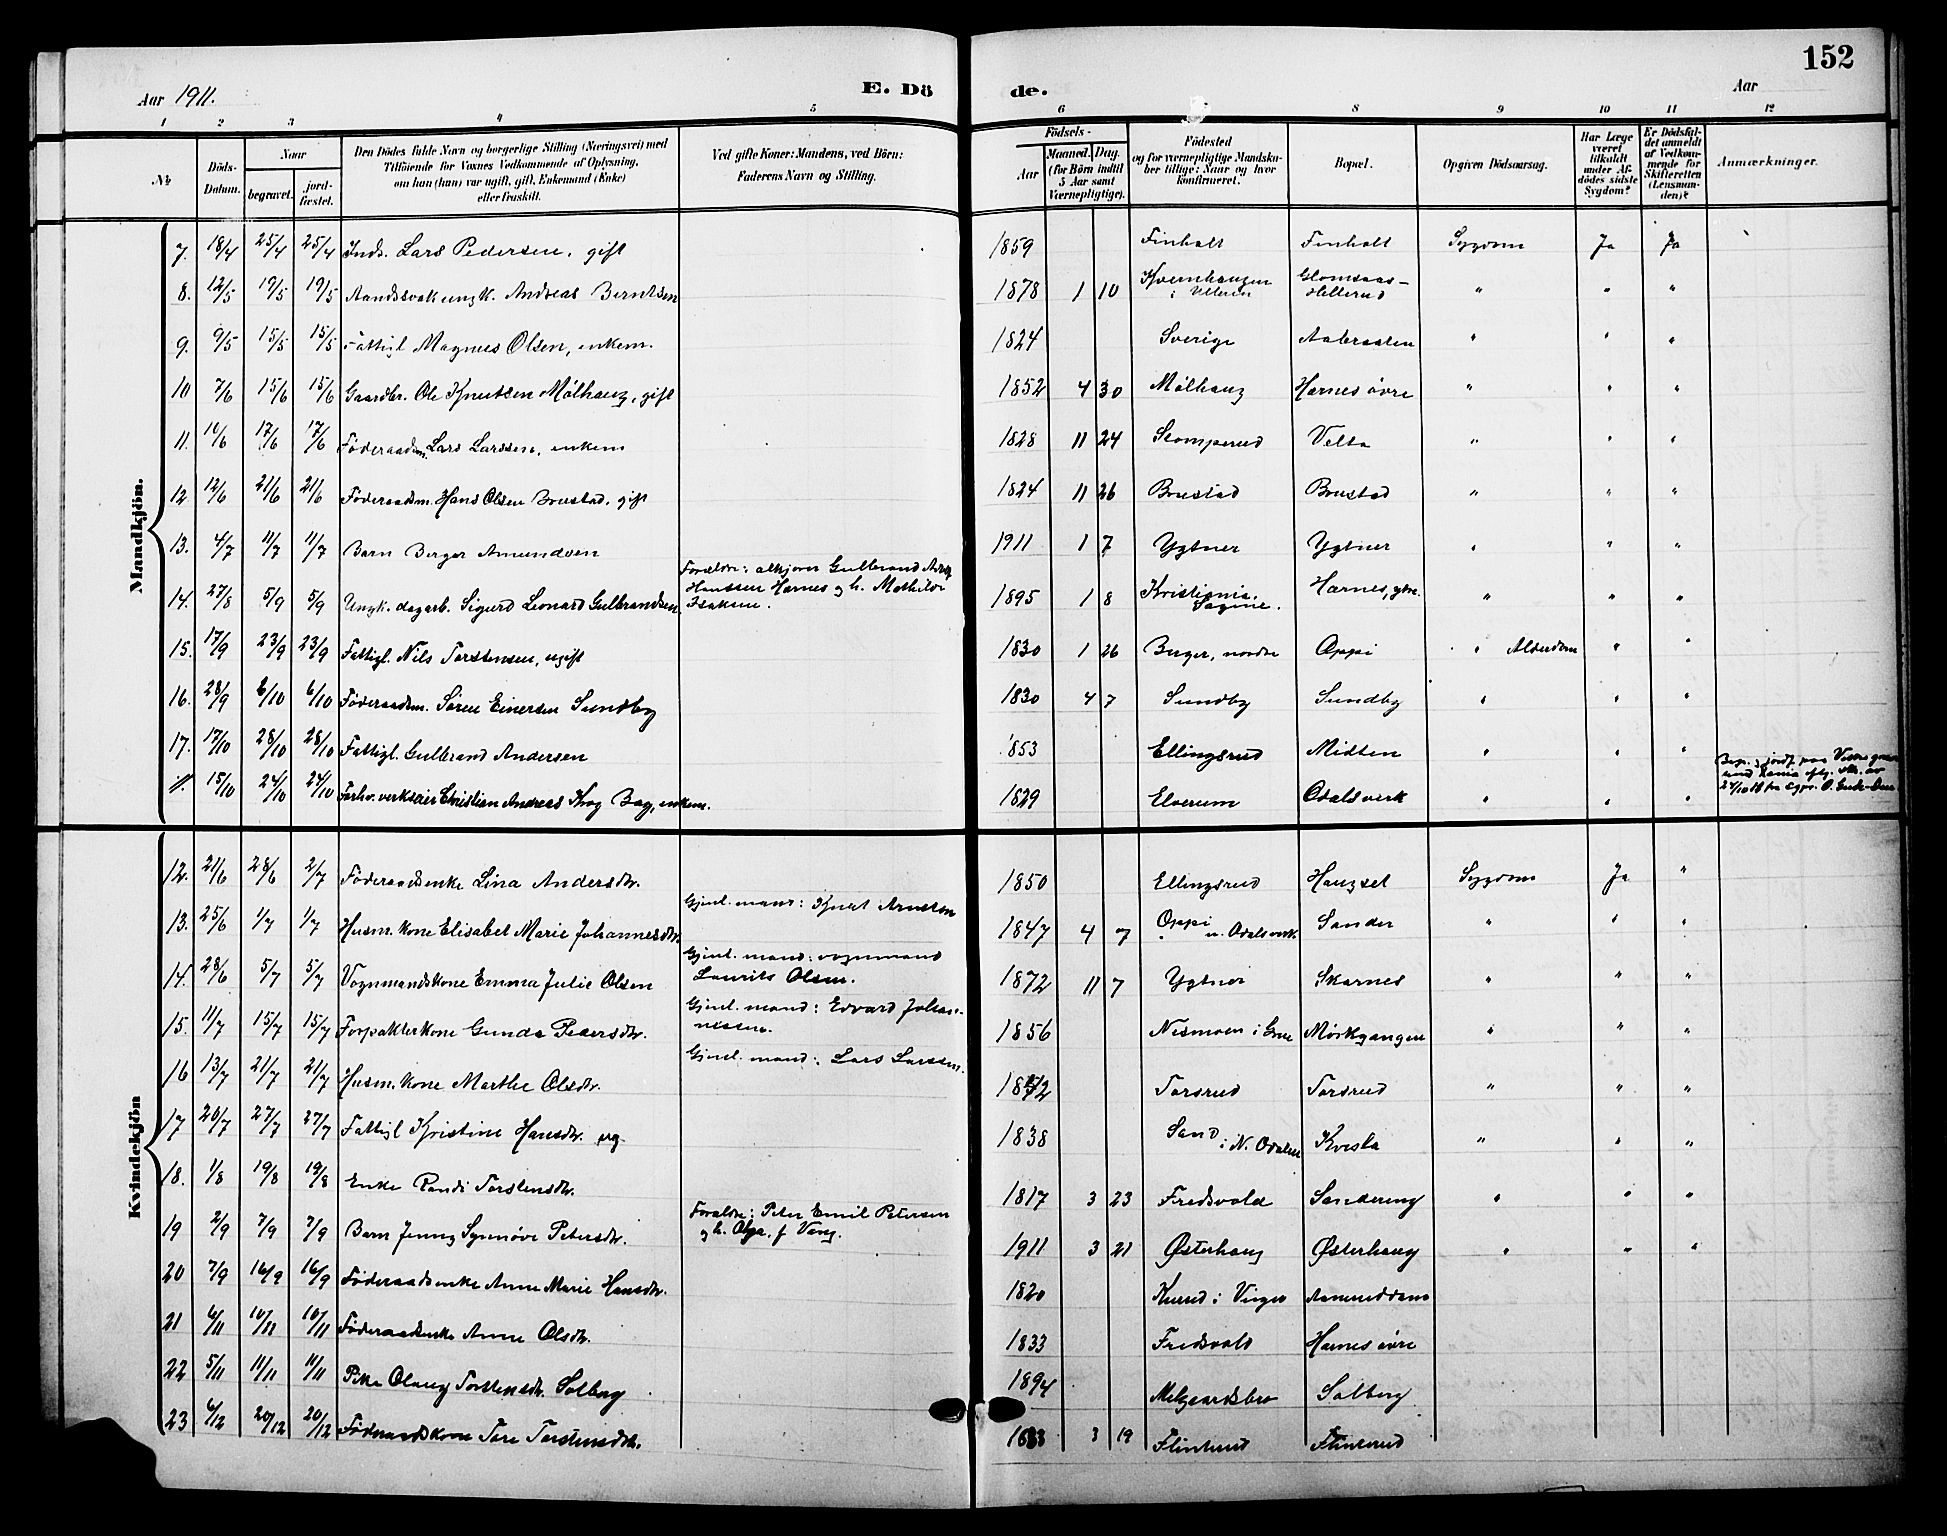 152
Aar 1911.
E. Dö
de.
Aar
1 2 3 4 5 6 8 9 10 11 12
No
Döds-Datum.
Naar
begravet.
jord-fæstet.
Den Dødes fulde Navn og borgerlige Stilling (Næringsvei) med Tilföiende för Voxnes Vedkommende af Oplysning, om han (hun) var ugift, gift, Enkemand (Enke) eller fraskilt.
Ved gifte Koner: Mandens, ved Börn: Faderens Navn og Stilling.
Födsels-
Aar
Maaned. Dag.
(for Börn indtil 5 Aar samt Værnepligtige).
Födested og for værnepligtige Mandskaber tillige: Naar og hvor konfirmeret.
Bopæl.
Opgiven Dödsaarsag.
Har Læge været tilkaldt under Afdödes sidste Sygdom?
Er Dödsfaldet anmeldt af Vedkommende for Skifteretten (Lensmanden)?
Anmærkninger.
Mandkjön.
7. 18/4 25/4 25/4 Inds. Lars Pedersen, gift 1859 Finholt Finholt Sygdom Ja Ja
8. 12/5 19/5 19/5 Aandssvak ungk. Andreas Berntsen 1878 1 10 Kvernhaugen i Glomsaas-Hillerud " " "
9. 9/5 15/5 15/5 Fattigl Magnus Olsen, enkem. 1824 Sverige Aabraaten " " "
10 7/6 15/6 15/6 Gaardbr. Ole Knutsen Mølhaug, gift 1852 4 30 Mølhaug Harnes övre " " "
11. 10/6 17/6 17/6 Föderaadsm. Lars Larssen, enkem 1828 11 24 Stomperud Velta " " "
12 12/6 21/6 21/6 Föderaadsm. Hans Olsen Brustad, gift 1824 11 26 Brustad Brustad " " "
13. 4/7 11/7 11/7 Barn Birger Amundsen 1911 1 7 Ygtner Ygtner " " "
14. 27/8 5/9 5/9 Ungk. dagarb. Sigurd Leonard Gulbrandsen Forældre: Gulbrand Hanssen Harnes og h. Mathilde Isaksen. 1895 1 8 Kristiania. Sagene. Harnes, " " "
15. 17/9 23/9 23/9 Fattigl. Nils Torstensen, ugift 1830 1 26 Berger, nordre Oppi " Alderdom " "
16. 28/9 6/10 6/10 Föderaadsm. Sören Einersen Sundby 1830 4 7 Sundby Sundby " " "
17. 17/10 28/10 28/10 Fattigl. Gulbrand Andersen 1853 Ellingsrud Midten " " "
15/10 24/10 24/10 Forhv. verkseier Christian Andreas Krog Bay, enkem. 1829 Elverum Odalsverk " " "
Kvindekjön
12. 21/6 28/6 2/7 Föderaadsenke Lina Andersdtr. 1850 Ellingsrud Haugset Sygdom Ja "
13. 25/6 1/7 1/7 Husm. kone Elisabet Marie Johannesdtr. Gjenl. mand: Knut Arnesen 1847 4 7 Oppi u. Odalsverk Sander " " "
14. 28/6 5/7 5/7 Vognmandskone Emma Julie Olsen Gjenl. mand: vognmand Laurits Olsen. 1872 11 7 Ygtner Skarnes " " "
15. 11/7 15/7 15/7 Forpakterkone Gunda Pedersdtr. Gjenl. mand: Edvard Johannessen. 1856 Nesmoen i Grue Mörkgangen " " "
16 13/7 21/7 21/7 Husm. kone Marthe Olsdtr. Gjenl. mand: Lars Larssen. Torsrud Torsrud " " "
17 20/7 27/7 27/7 Fattigl Kristine Hansdtr. ug. 1838 Sand i N. Odalen Kvisla " " "
18. 1/8 19/8 19/8 Enke Randi Torstensdtr. 1817 3 23 Fredsvold Sandereng " " "
19 2/9 7/9 7/9 Barn Jenny Synnöve Petersdtr. Forældre: Peter Emil Petersen og h. Olga, f Vang. 1911 3 21 Østerhaug Østerhaug " " "
20 7/9 16/9 16/9 Föderaadsenke Anne Marie Hansdtr. 1820 Kurud i Vinger Aamruddams
21 6/11 10/11 10/11 Föderaadsenke Anne Olsdtr. 1833 Fredsvold Harnes övre
22 5/11 11/11 11/11 Pike Olaug Torstensdtr. Solberg 1894 Melgaardsbro Solberg
23 6/12 20/12 20/12 Föderaadskone Tore Torstensdtr. 3 19 Flinterud Flinterud